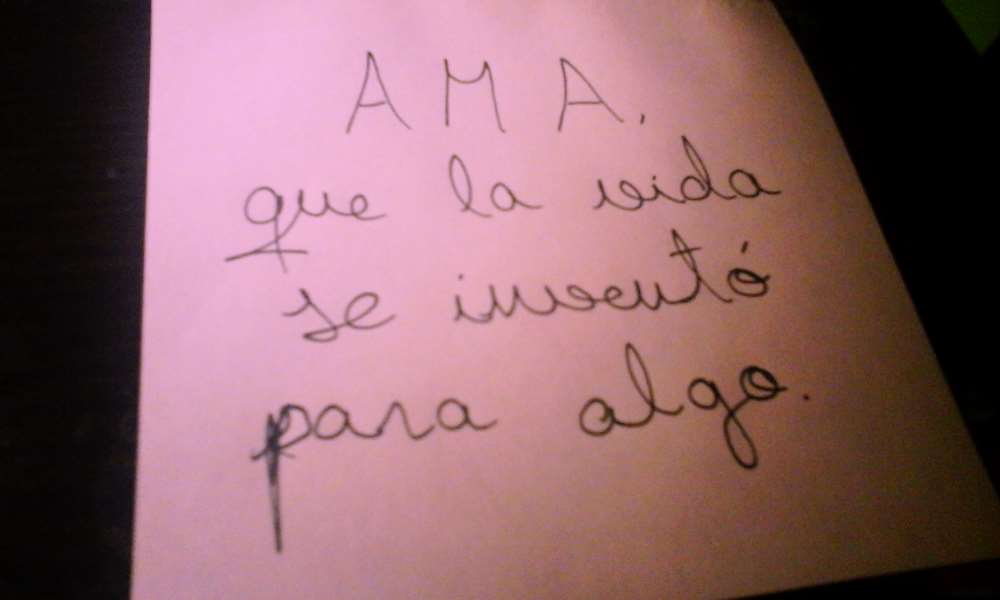 AMA,
que la vida
se inventó
para algo.